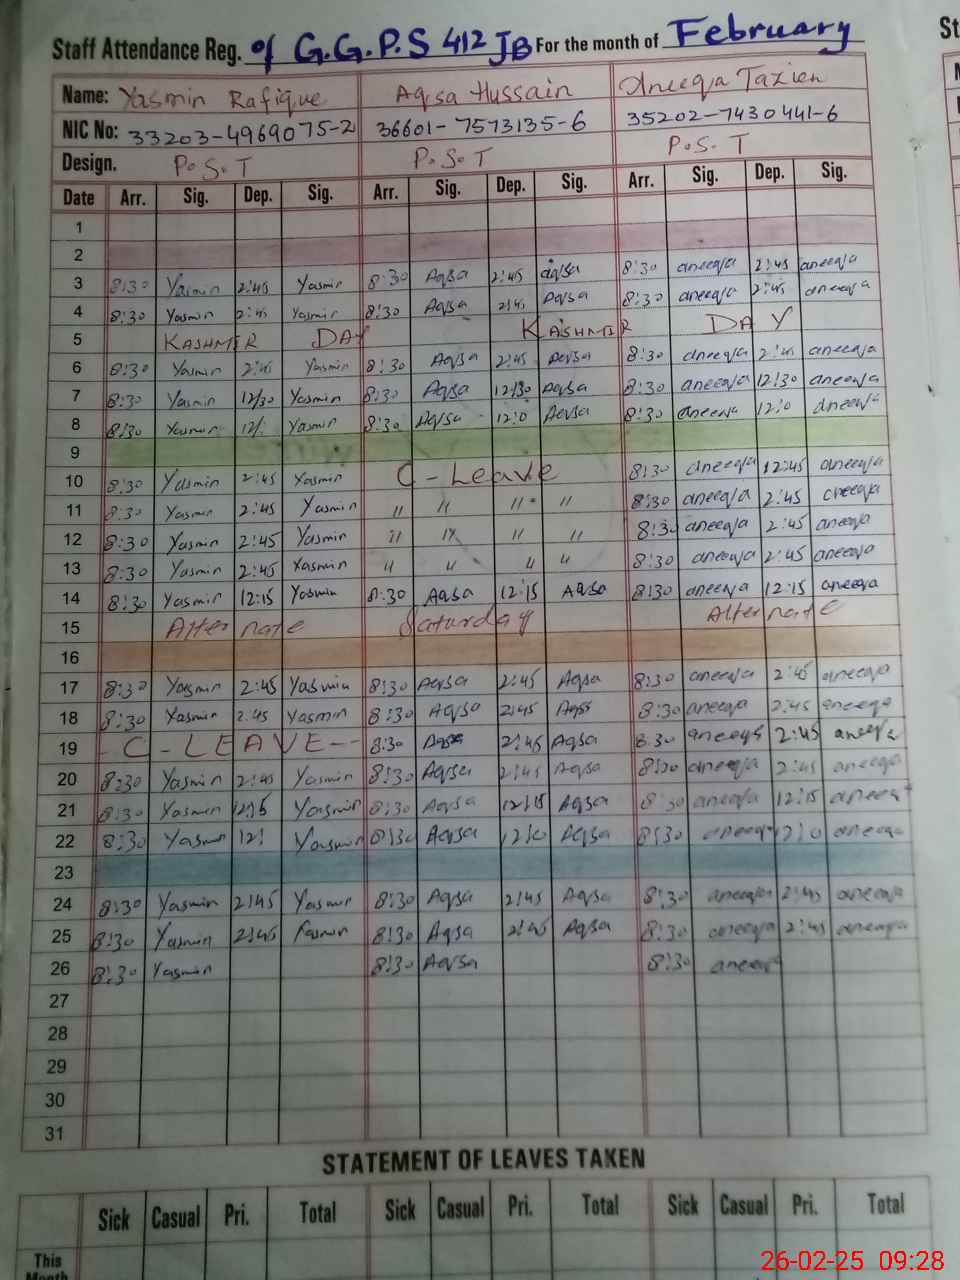 Staff Attendance Reg. of G.G.P.S 412 JB For the month of February
Name: Yasmin Rafique Aqsa Hussain Aneeqa Tazien
NIC No: 33203-4969075-2 36601-7573135-6 35202-7430441-6
Design. P.S.T P.S.T P.S.T
Date Arr. Sig. Dep. Sig. Arr. Sig. Dep. Sig. Arr. Sig. Dep. Sig.
1
2
3 8:30 Yasmin 2:45 Yasmin 8:30 Aqsa 2:45 Aqsa 8:30 aneeqa 2:45 aneeqa
4 8:30 Yasmin 2:45 Yasmin 8:30 Aqsa 2:45 Aqsa 8:30 aneeqa 2:45 aneeqa
5 KASHMIR DAY KASHMIR DAY
6 8:30 Yasmin 2:45 Yasmin 8:30 Aqsa 2:45 Aqsa 8:30 aneeqa 2:45 aneeqa
7 8:30 Yasmin 12/30 Yasmin 8:30 Aqsa 12/30 Aqsa 8:30 aneeqa 12:30 aneeqa
8 8:30 Yasmin Yasmin 8:30 Aqsa 12:0 Aqsa 8:30 aneeqa 12:0 aneeqa
9
10 8:30 Yasmin 2:45 Yasmin C-Leave 8:30 aneeqa 12:45 aneeqa
11 8:30 Yasmin 2:45 Yasmin " " " " 8:30 aneeqa 2:45 aneeqa
12 8:30 Yasmin 2:45 Yasmin " " " " 8:30 aneeqa 2:45 aneeqa
13 8:30 Yasmin 2:45 Yasmin " " " " 8:30 aneeqa 2:45 aneeqa
14 8:30 Yasmin 12:15 Yasmin 8:30 Aqsa 12:15 Aqsa 8:30 aneeqa 12:15 aneeqa
15 Alternate Saturday Alternate
16
17 8:30 Yasmin 2:45 Yasmin 8:30 Aqsa 2:45 Aqsa 8:30 aneeqa 2:45 aneeqa
18 8:30 Yasmin 2:45 Yasmin 8:30 Aqsa 2:45 Aqsa 8:30 aneeqa 2:45 aneeqa
19 - C - LEAVE -- 8:30 Aqsa 2:45 Aqsa 8:30 aneeqa 2:45 aneeqa
20 8:30 Yasmin 2:45 Yasmin 8:30 Aqsa 2:45 Aqsa 8:30 aneeqa 2:45 aneeqa
21 8:30 Yasmin 12:15 Yasmin 8:30 Aqsa 12:15 Aqsa 8:30 aneeqa 12:15 aneeqa
22 8:30 Yasmin Yasmin 8:30 Aqsa 12:0 Aqsa 8:30 aneeqa 12:0 aneeqa
23
24 8:30 Yasmin 2:45 Yasmin 8:30 Aqsa 2:45 Aqsa 8:30 aneeqa 2:45 aneeqa
25 8:30 Yasmin 2:45 Yasmin 8:30 Aqsa 2:45 Aqsa 8:30 aneeqa 2:45 aneeqa
26 8:30 Yasmin 8:30 Aqsa 8:30 aneeqa
27
28
29
30
31
STATEMENT OF LEAVES TAKEN
Sick Casual Pri. Total Sick Casual Pri. Total Sick Casual Pri. Total
This
Month
26-02-25 09:28